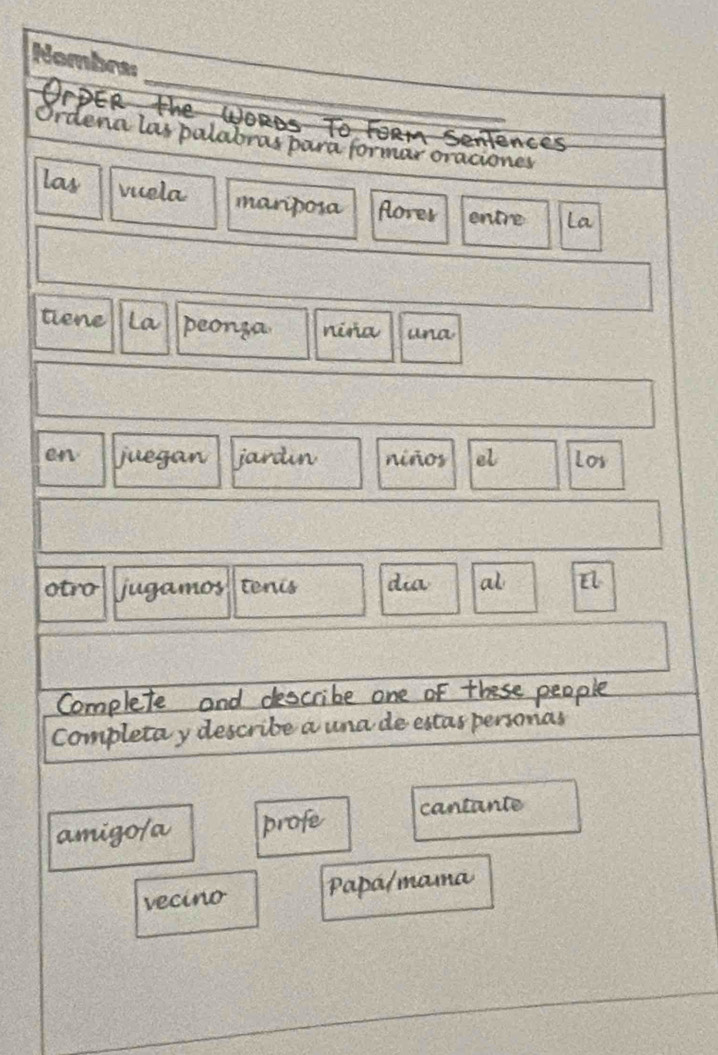 Nombre:
OrDER the WORDS To FORM Sentences
Ordena las palabras para formar oraciones
las vuela mariposa flores entre La
tiene La peonza niña una
en juegan jardín niños el Los
otro jugamos tenis día al El
Complete and describe one of these people
Completa y describe a una de estas personas
amigo/a profe cantante
vecino Papá/mama